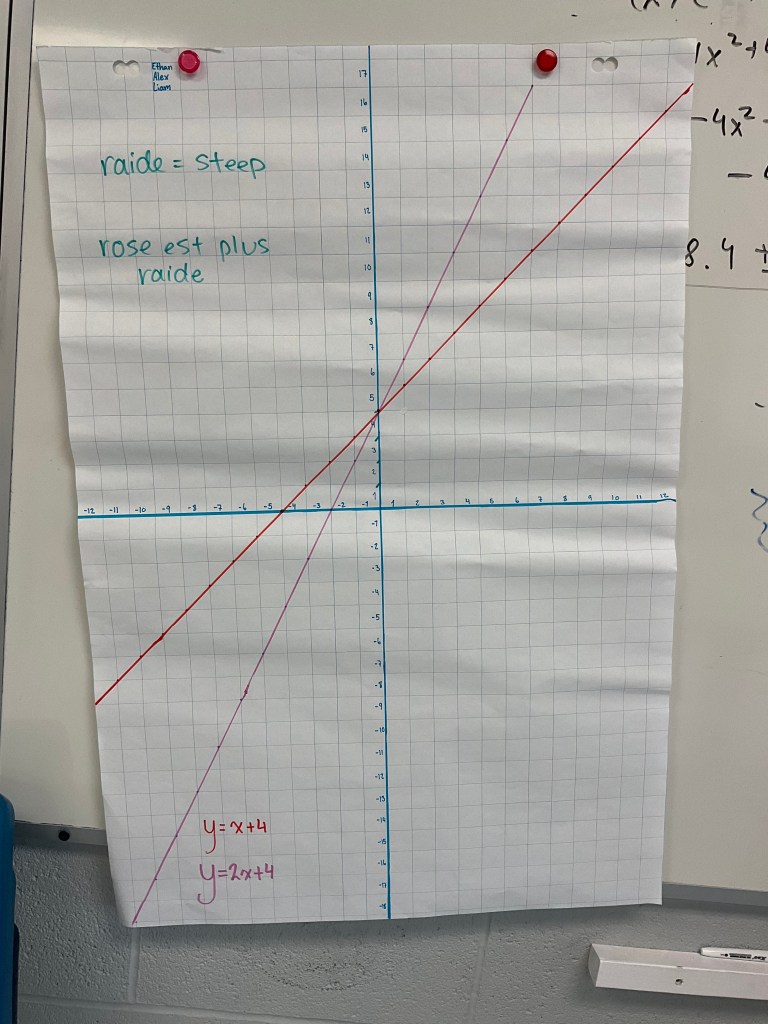 Ethan
Alex
Liam
raide = steep
rose est plus
raide
17
16
15
14
13
12
11
10
9
8
7
6
5
4
3
2
1
-12 -11 -10 -9 -8 -7 -6 -5 -4 -3 -2 -1 1 2 3 4 5 6 7 8 9 10 11 12
-1
-2
-3
-4
-5
-6
-7
-8
-9
-10
-11
-12
-13
-14
-15
-16
-17
-18
y=x+4
y=2x+4
-4x²
8.4 ±